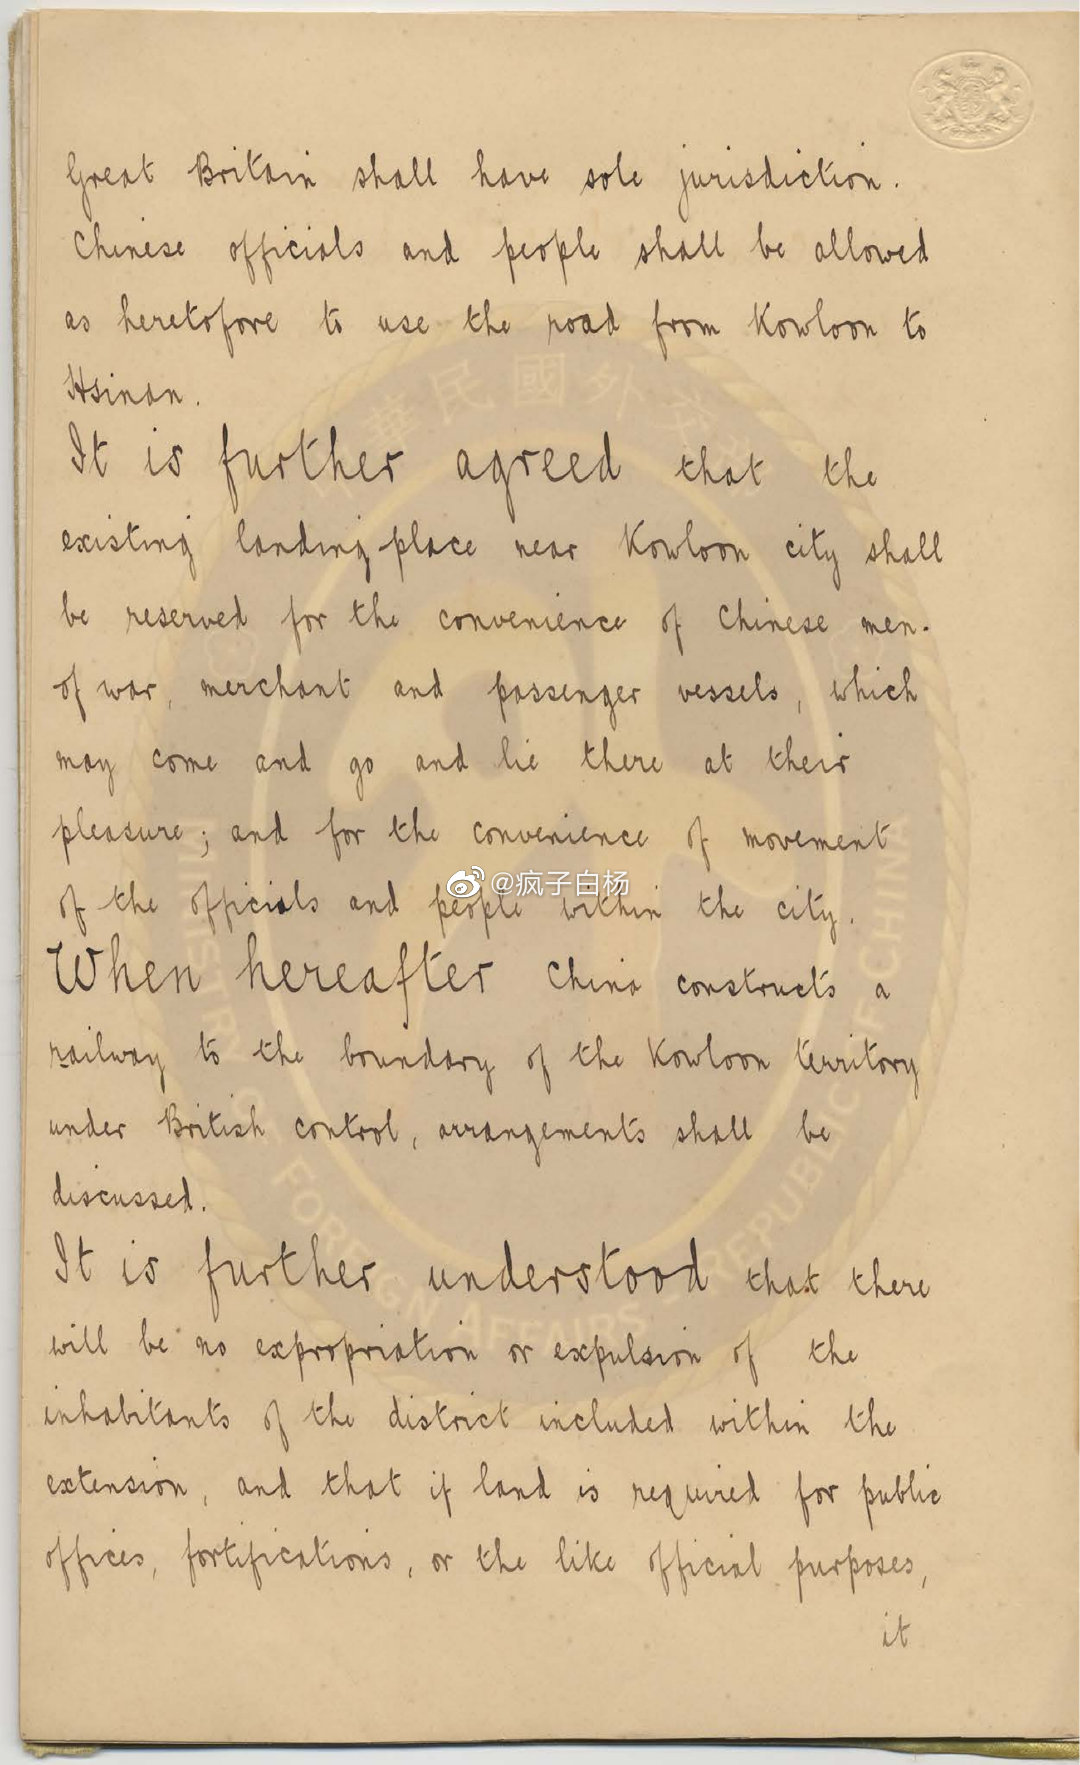 Great Britain shall have sole jurisdiction.
Chinese officials and people shall be allowed
as heretofore to use the road from Kowloon to
Hsinan.
It is further agreed that the
existing landing-place near Kowloon city shall
be reserved for the convenience of Chinese men-
of war, merchant and passenger vessels, which
may come and go and lie there at their
pleasure; and for the convenience of movement
@疯子白杨
of the officials and people within the city.
When hereafter China constructs a
railway to the boundary of the Kowloon territory
under British control, arrangements shall be
discussed.
It is further understood that there
will be no expropriation or expulsion of the
inhabitants of the district included within the
extension, and that if land is required for public
offices, fortifications, or the like official purposes,
it
華民國外交
FOREIGN AFFAIRS REPUBLIC OF CHINA